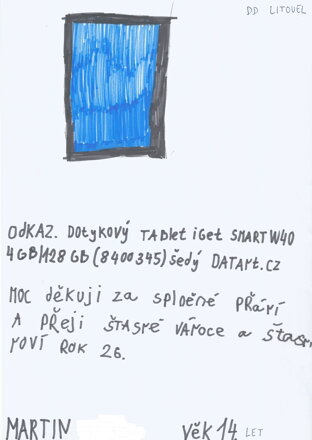 DD LITOVEL
ODKAZ. DOTYKOVÝ TABLET iGet SMART W40
4GB/128GB (8400345) šedý DATART.CZ
MOC děkuji za sploěné PŘÁRÍ
A PŘEJI ŠTASRÉ VÁROCE a šťasr
ROVÍ ROK 26.
MARTIN
VĚK 14 LET